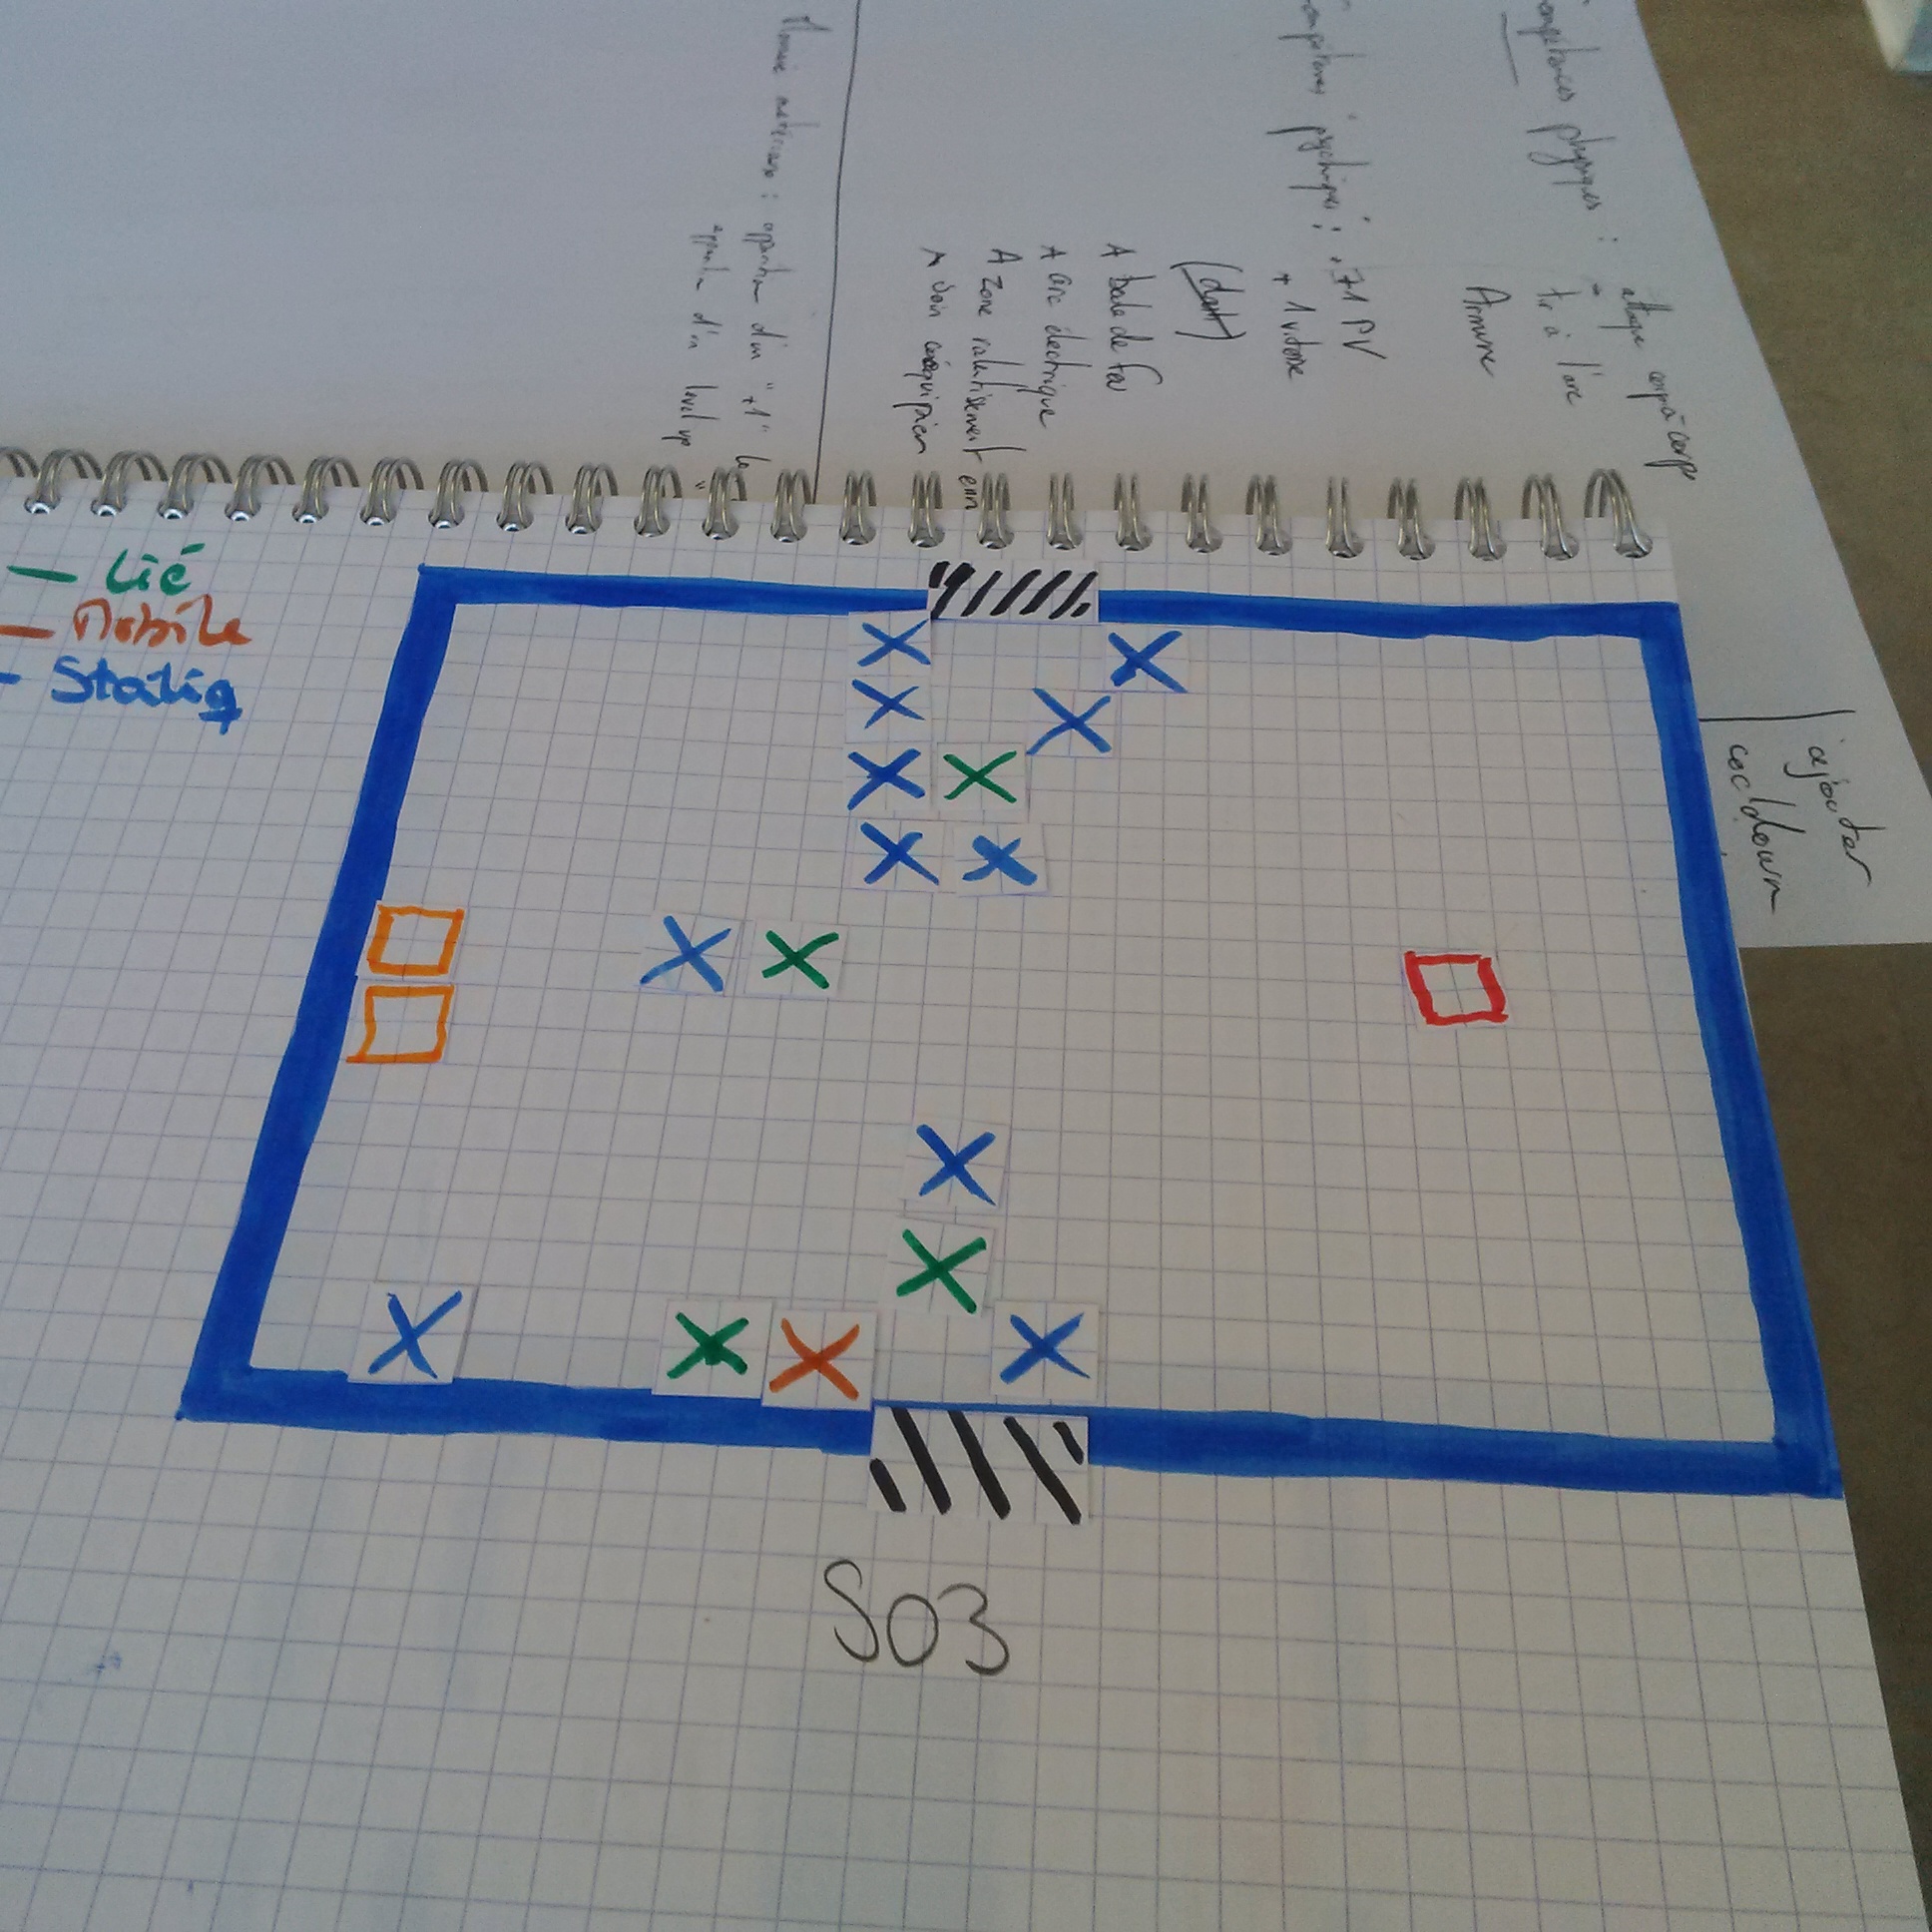 compétences physiques : - attaque corp à corp
- tir à l'arc
Armure
compétences psychiques : . +1 PV
+ 1 vitesse
A boule de feu
A arc électrique
A zone ralentissement enn
A soin coéquipier
apparition d'un "+1"
apparition d'un level up
ajouter
cocldown
— Lié
— Mobile
- Statiq
S03